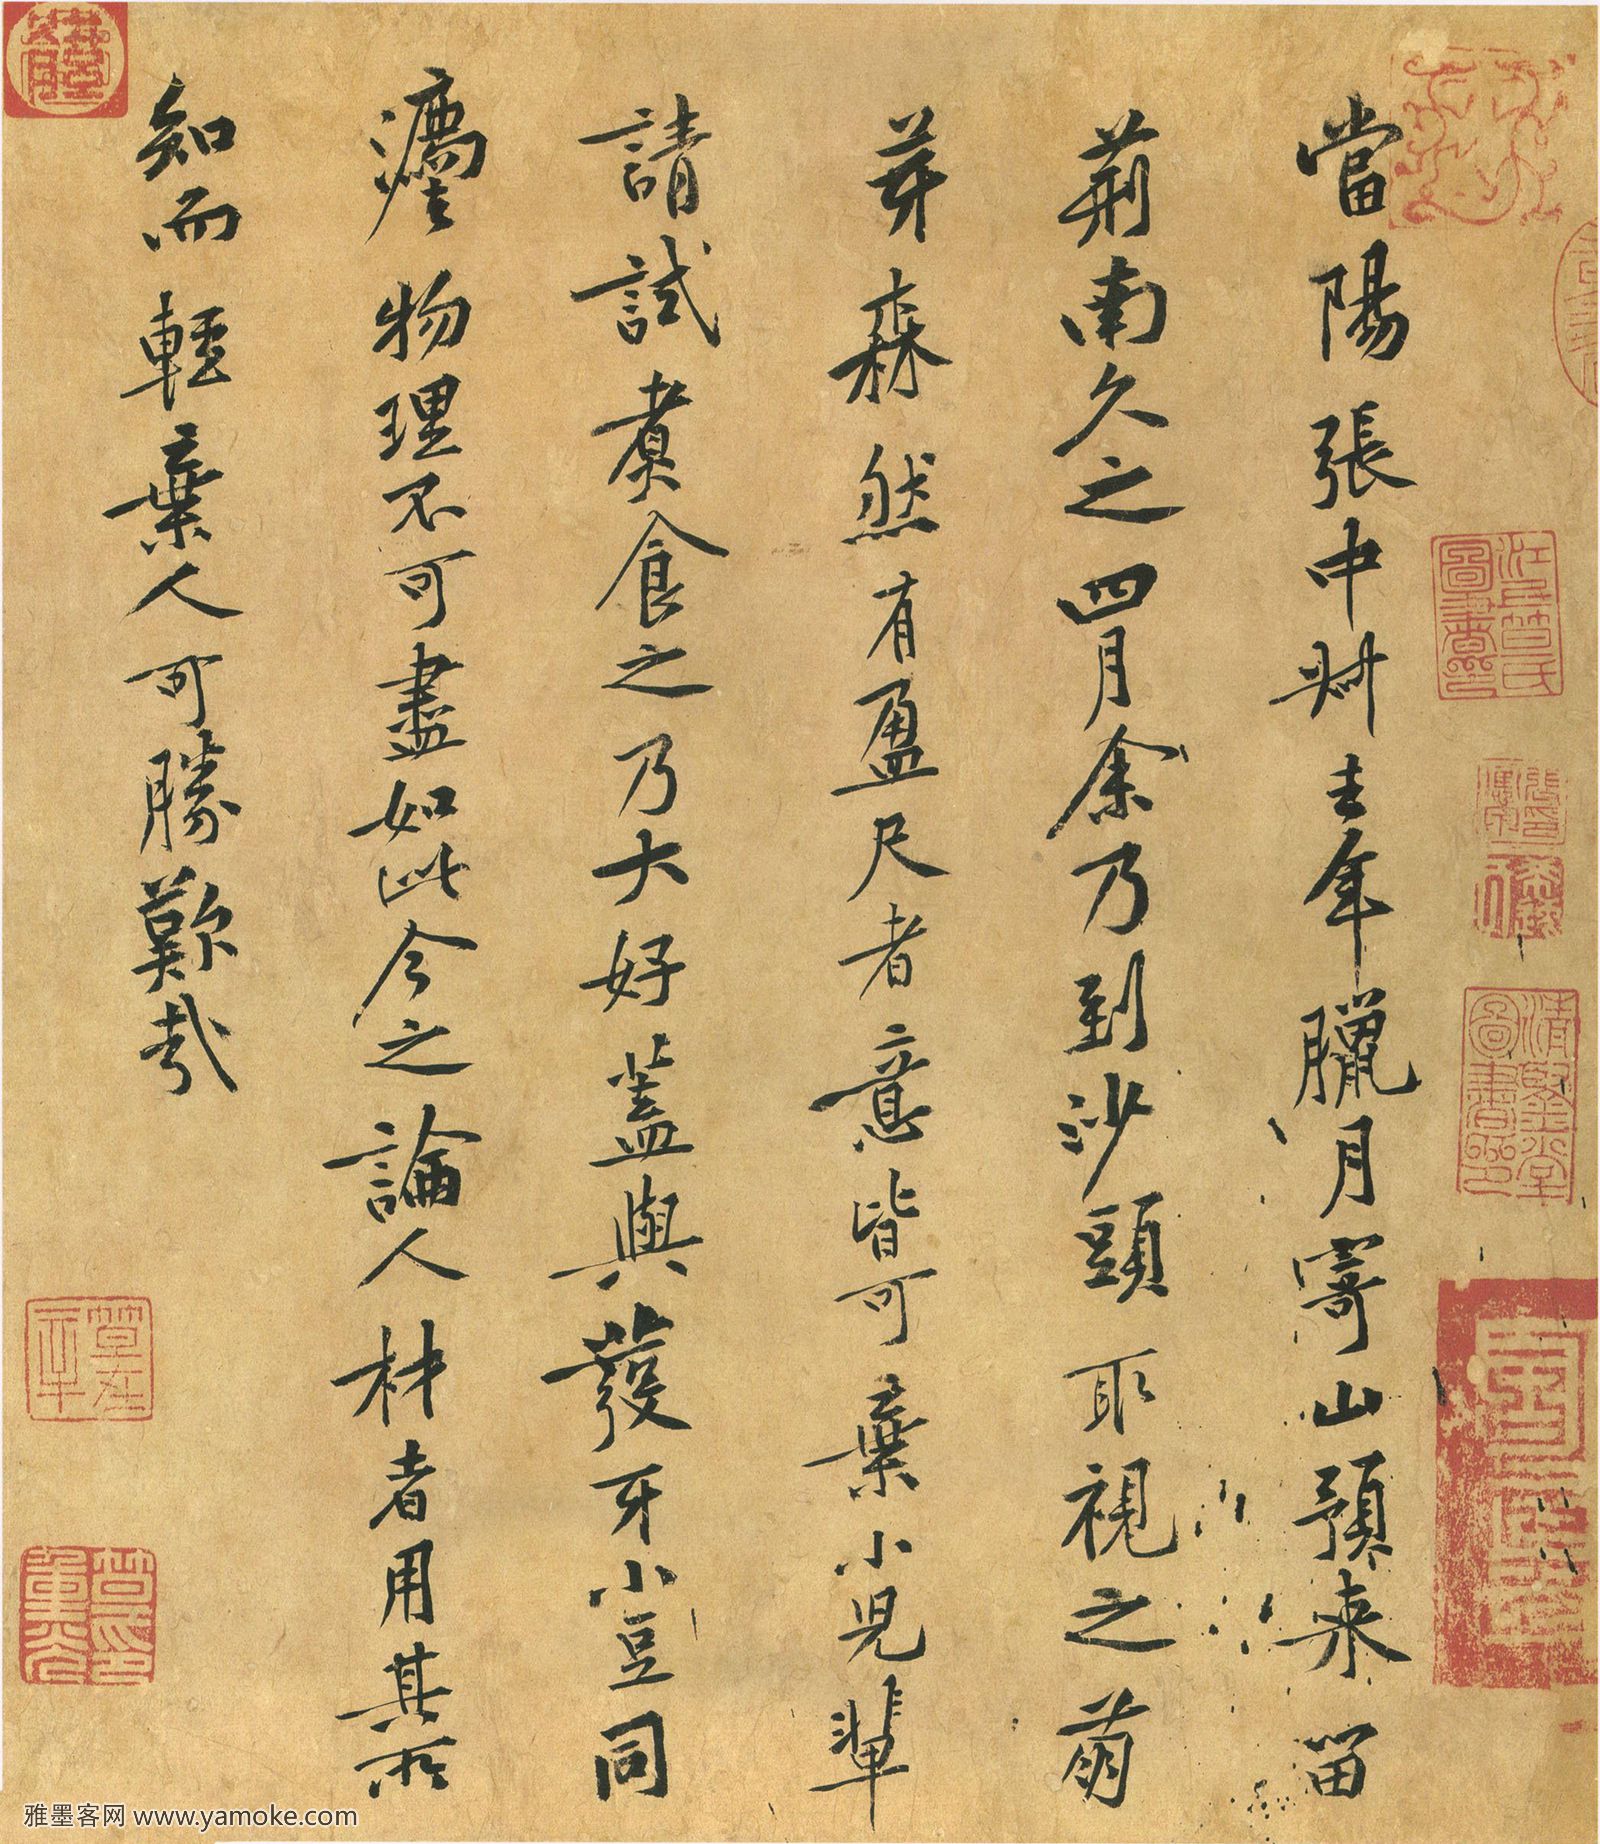 當陽張中叔去年臘月寄山預来留
荊南久之四月余乃到沙頭取視之萌
芽森然有盈尺者意皆可棄小兒輩
請試煑食之乃大好蓋與發牙小豆同
灋物理不可盡如此今之論人材者用其所
知而輕棄人可勝歎哉
江上笪氏圖書印
雅墨客网 www.yamoke.com